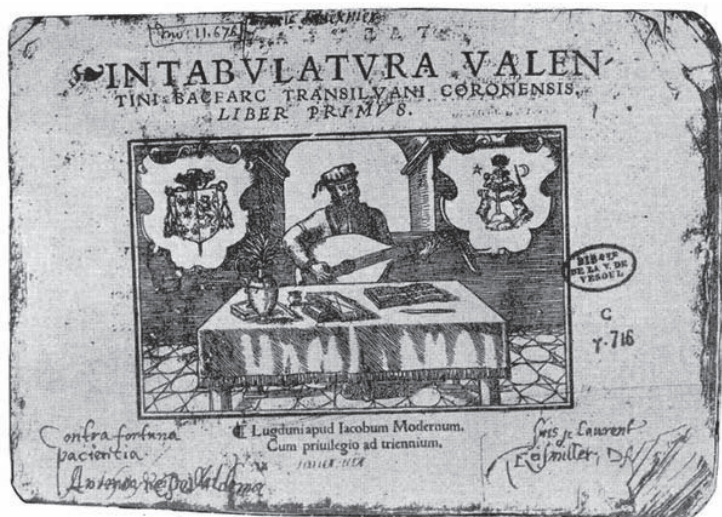 Inv: 11.676
INTABVLATVRA VALEN
TINI BACFARC TRANSILVANI CORONENSIS.
LIBER PRIMVS.
BIBQUE
DE LA V. DE
VESOUL
C
γ. 716
Lugduni apud Iacobum Modernum.
Cum priuilegio ad triennium.
Contra fortuna
pacientia
Laurent